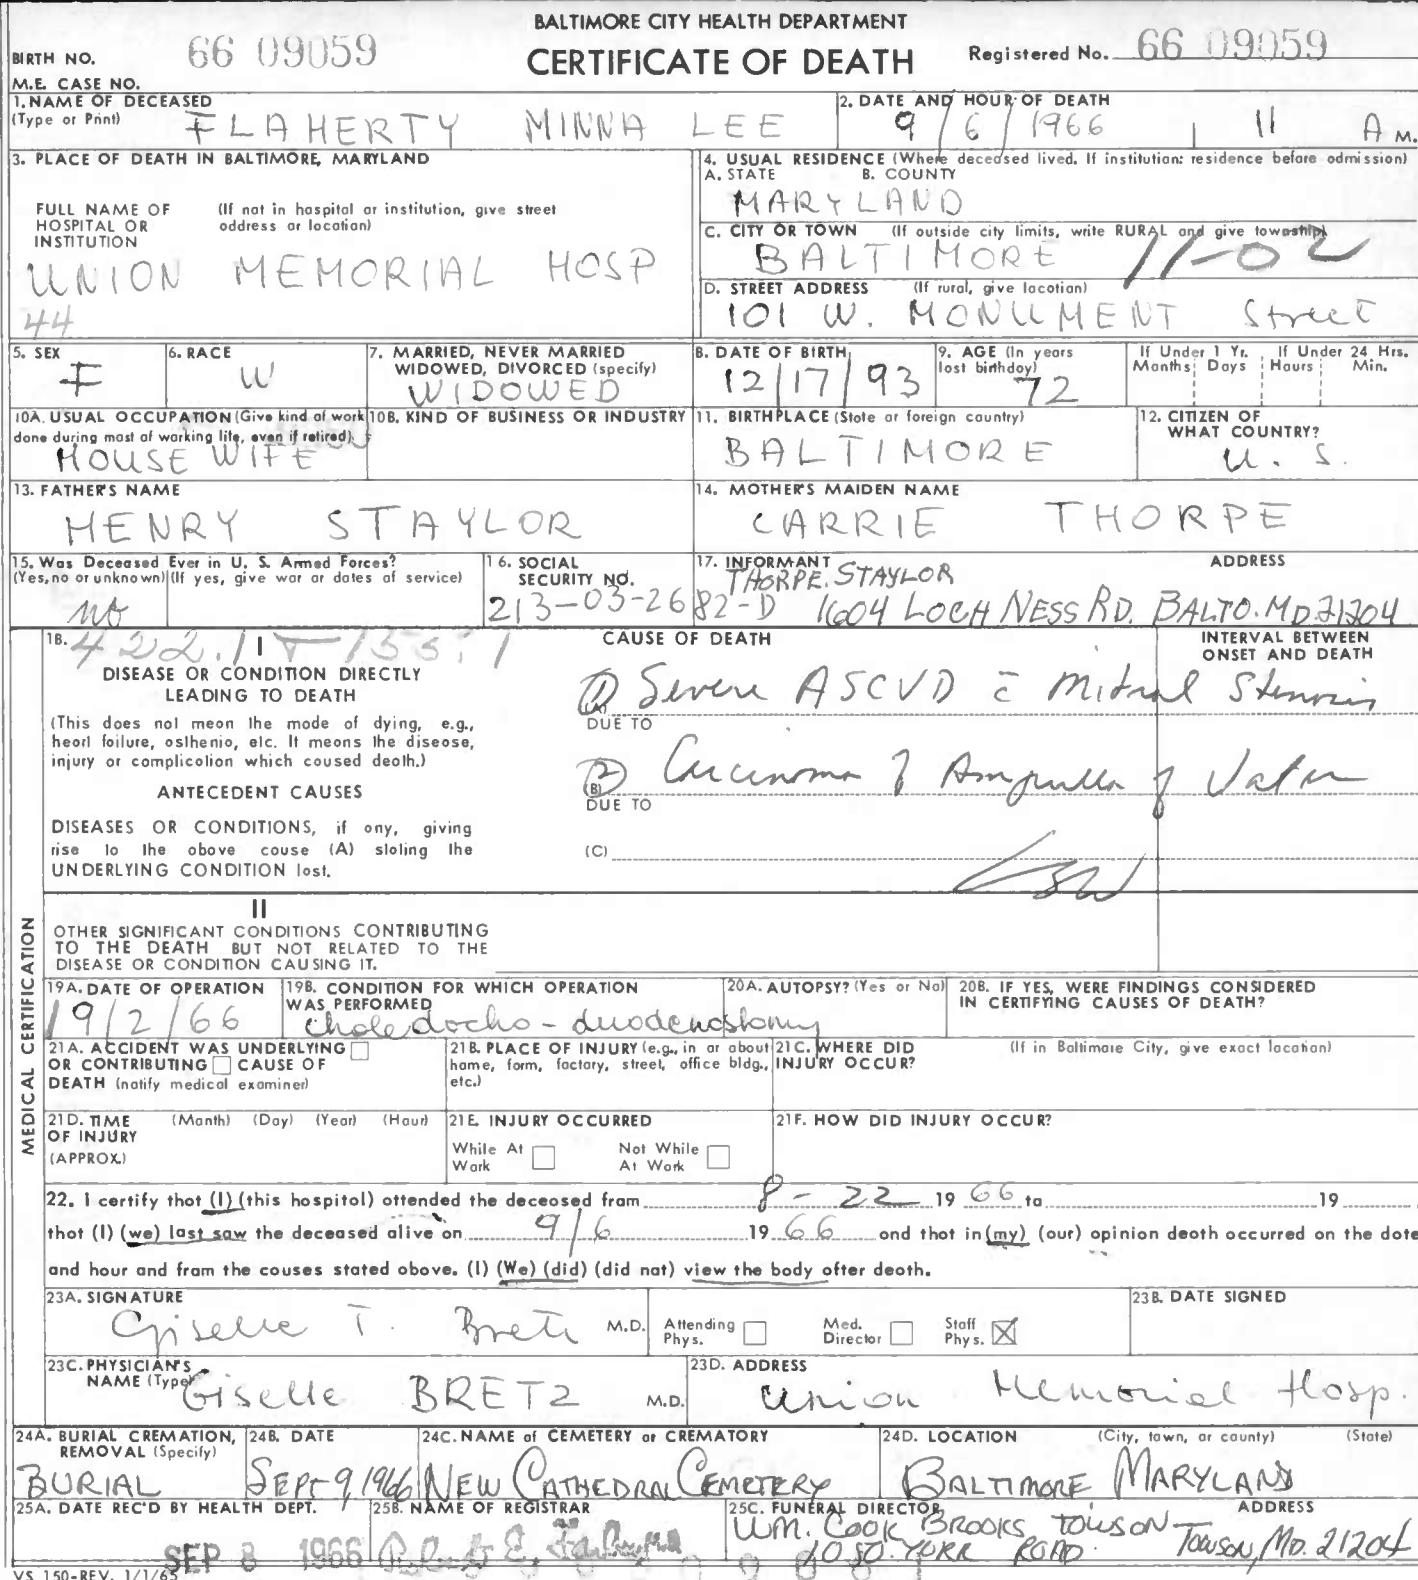 BALTIMORE CITY HEALTH DEPARTMENT
CERTIFICATE OF DEATH
BIRTH NO. 66 09059
Registered No. 66 09059
M.E. CASE NO.
1. NAME OF DECEASED (Type or Print) FLAHERTY MINNA LEE
2. DATE AND HOUR OF DEATH 9/6/1966 11 A M.
3. PLACE OF DEATH IN BALTIMORE, MARYLAND
FULL NAME OF HOSPITAL OR INSTITUTION (If not in hospital or institution, give street address or location)
UNION MEMORIAL HOSP
44
4. USUAL RESIDENCE (Where deceased lived. If institution: residence before admission)
A. STATE B. COUNTY
MARYLAND
C. CITY OR TOWN (If outside city limits, write RURAL and give township)
BALTIMORE 11-02
D. STREET ADDRESS (If rural, give location)
101 W. MONUMENT Street
5. SEX F
6. RACE W
7. MARRIED, NEVER MARRIED WIDOWED, DIVORCED (specify) WIDOWED
8. DATE OF BIRTH 12/17/93
9. AGE (In years last birthday) 72
If Under 1 Yr. Months Days
If Under 24 Hrs. Hours Min.
10A. USUAL OCCUPATION (Give kind of work done during most of working life, even if retired) HOUSE WIFE
10B. KIND OF BUSINESS OR INDUSTRY
11. BIRTHPLACE (State or foreign country) BALTIMORE
12. CITIZEN OF WHAT COUNTRY? U. S.
13. FATHER'S NAME HENRY STAYLOR
14. MOTHER'S MAIDEN NAME CARRIE THORPE
15. Was Deceased Ever in U. S. Armed Forces? (Yes, no or unknown) (If yes, give war or dates of service) no
16. SOCIAL SECURITY NO. 213-03-2682-D
17. INFORMANT ADDRESS
THORPE. STAYLOR
1604 LOCH NESS RD. BALTO. MD 21204
MEDICAL CERTIFICATION
18. 422.1
I
DISEASE OR CONDITION DIRECTLY LEADING TO DEATH
(This does not mean the mode of dying, e.g., heart failure, asthenia, etc. It means the disease, injury or complication which caused death.)
ANTECEDENT CAUSES
DISEASES OR CONDITIONS, if any, giving rise to the above cause (A) stating the UNDERLYING CONDITION last.
CAUSE OF DEATH
INTERVAL BETWEEN ONSET AND DEATH
(A) (1) Severe ASCVD c̄ Mitral Stenosis
DUE TO
(B) (2) Carcinoma of Ampulla of Vater
DUE TO
(C)
II
OTHER SIGNIFICANT CONDITIONS CONTRIBUTING TO THE DEATH BUT NOT RELATED TO THE DISEASE OR CONDITION CAUSING IT.
19A. DATE OF OPERATION 9/2/66
19B. CONDITION FOR WHICH OPERATION WAS PERFORMED choledocho-duodenostomy
20A. AUTOPSY? (Yes or No)
20B. IF YES, WERE FINDINGS CONSIDERED IN CERTIFYING CAUSES OF DEATH?
21A. ACCIDENT WAS UNDERLYING OR CONTRIBUTING CAUSE OF DEATH (notify medical examiner)
21B. PLACE OF INJURY (e.g., in or about home, farm, factory, street, office bldg., etc.)
21C. WHERE DID INJURY OCCUR? (If in Baltimore City, give exact location)
21D. TIME OF INJURY (APPROX.) (Month) (Day) (Year) (Hour)
21E. INJURY OCCURRED While At Work Not While At Work
21F. HOW DID INJURY OCCUR?
22. I certify that (I) (this hospital) attended the deceased from 8-22 19 66 to 19
that (I) (we) last saw the deceased alive on 9/6 19 66 and that in (my) (our) opinion death occurred on the date
and hour and from the causes stated above. (I) (We) (did) (did not) view the body after death.
23A. SIGNATURE Giselle T. Bretz M.D. Attending Phys. Med. Director Staff Phys. X
23B. DATE SIGNED
23C. PHYSICIAN'S NAME (Type) Giselle BRETZ M.D.
23D. ADDRESS Union Memorial Hosp.
24A. BURIAL CREMATION, REMOVAL (Specify) BURIAL
24B. DATE SEPT 9, 1966
24C. NAME of CEMETERY or CREMATORY NEW CATHEDRAL CEMETERY
24D. LOCATION (City, town, or county) (State) BALTIMORE MARYLAND
25A. DATE REC'D BY HEALTH DEPT. SEP 8 1966
25B. NAME OF REGISTRAR Robert E.
25C. FUNERAL DIRECTOR ADDRESS
WM. COOK BROOKS TOWSON
1050 YORK ROAD. TOWSON, MD. 21204
VS 150-REV. 1/1/65